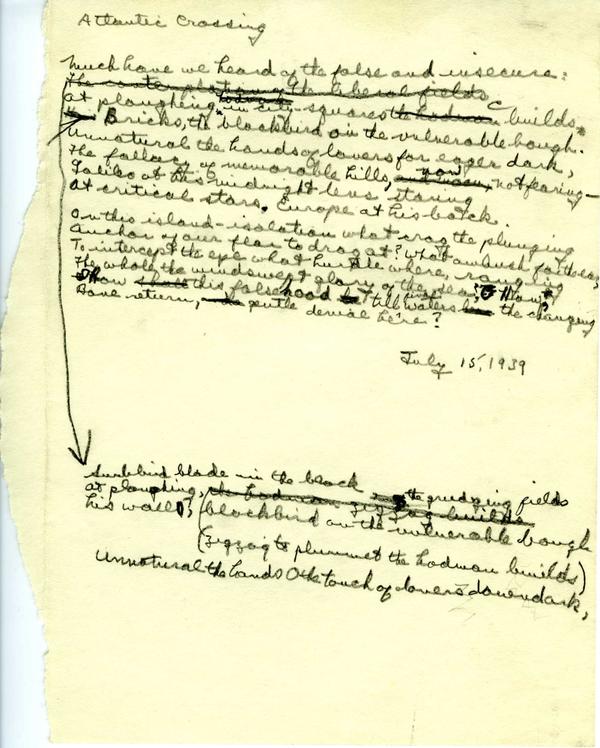 Atlantic Crossing
Much have we heard of the false and insecure:
The contemplation of the liberal fields
At ploughing, in city-squares the hodman builds
Bricks, the blackbird on the vulnerable bough.
Unnatural the hands of lovers for eager dark,
The fallacy of memorable hills, now not fearing—
Galileo at his midnight lens staring
At critical stars, Europe at his back.
On this island-isolation what crag the plunging
Anchor of our fear to drag at? What ambush for the ear,
To intercept the eye what hurdle where, ranging
The whole the windswept glory of the sea,? How,
How shall this falsehood till waters the changing
Bone return, gentle denial here?
July 15, 1939
blade in the black the grudging fields
At ploughing, the hodman zigzag builds
his wall, blackbird on the vulnerable bough
(Zigzag to plummet the hodman builds)
Unnatural the hands O the touch of lovers downdark,